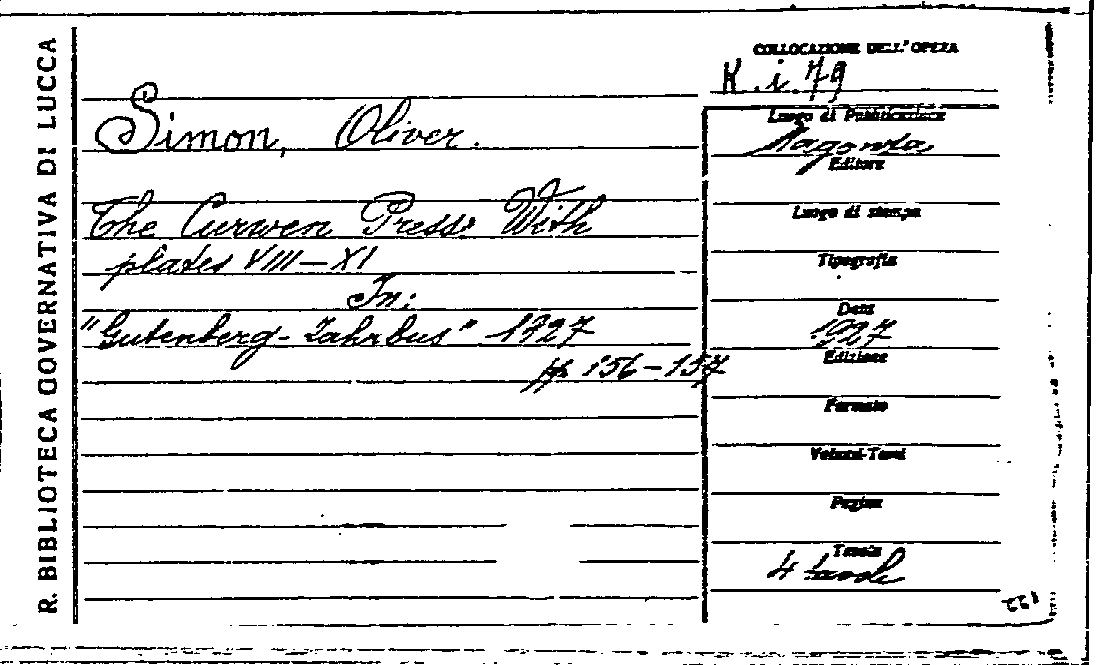 R. BIBLIOTECA GOVERNATIVA DI LUCCA
COLLOCAZIONE DELL'OPERA
K. i. 79
Simon, Oliver.
The Curwen Press. With
plates VIII-XI
In:
"Gutenberg-Jahrbus" 1927
pp. 156-157
Luogo di Pubblicazione
Magonza
Editore
Luogo di stampa
Tipografia
Data
1927
Edizione
Formato
Volumi-Tomi
Pagine
Tavole
4 tavole
122